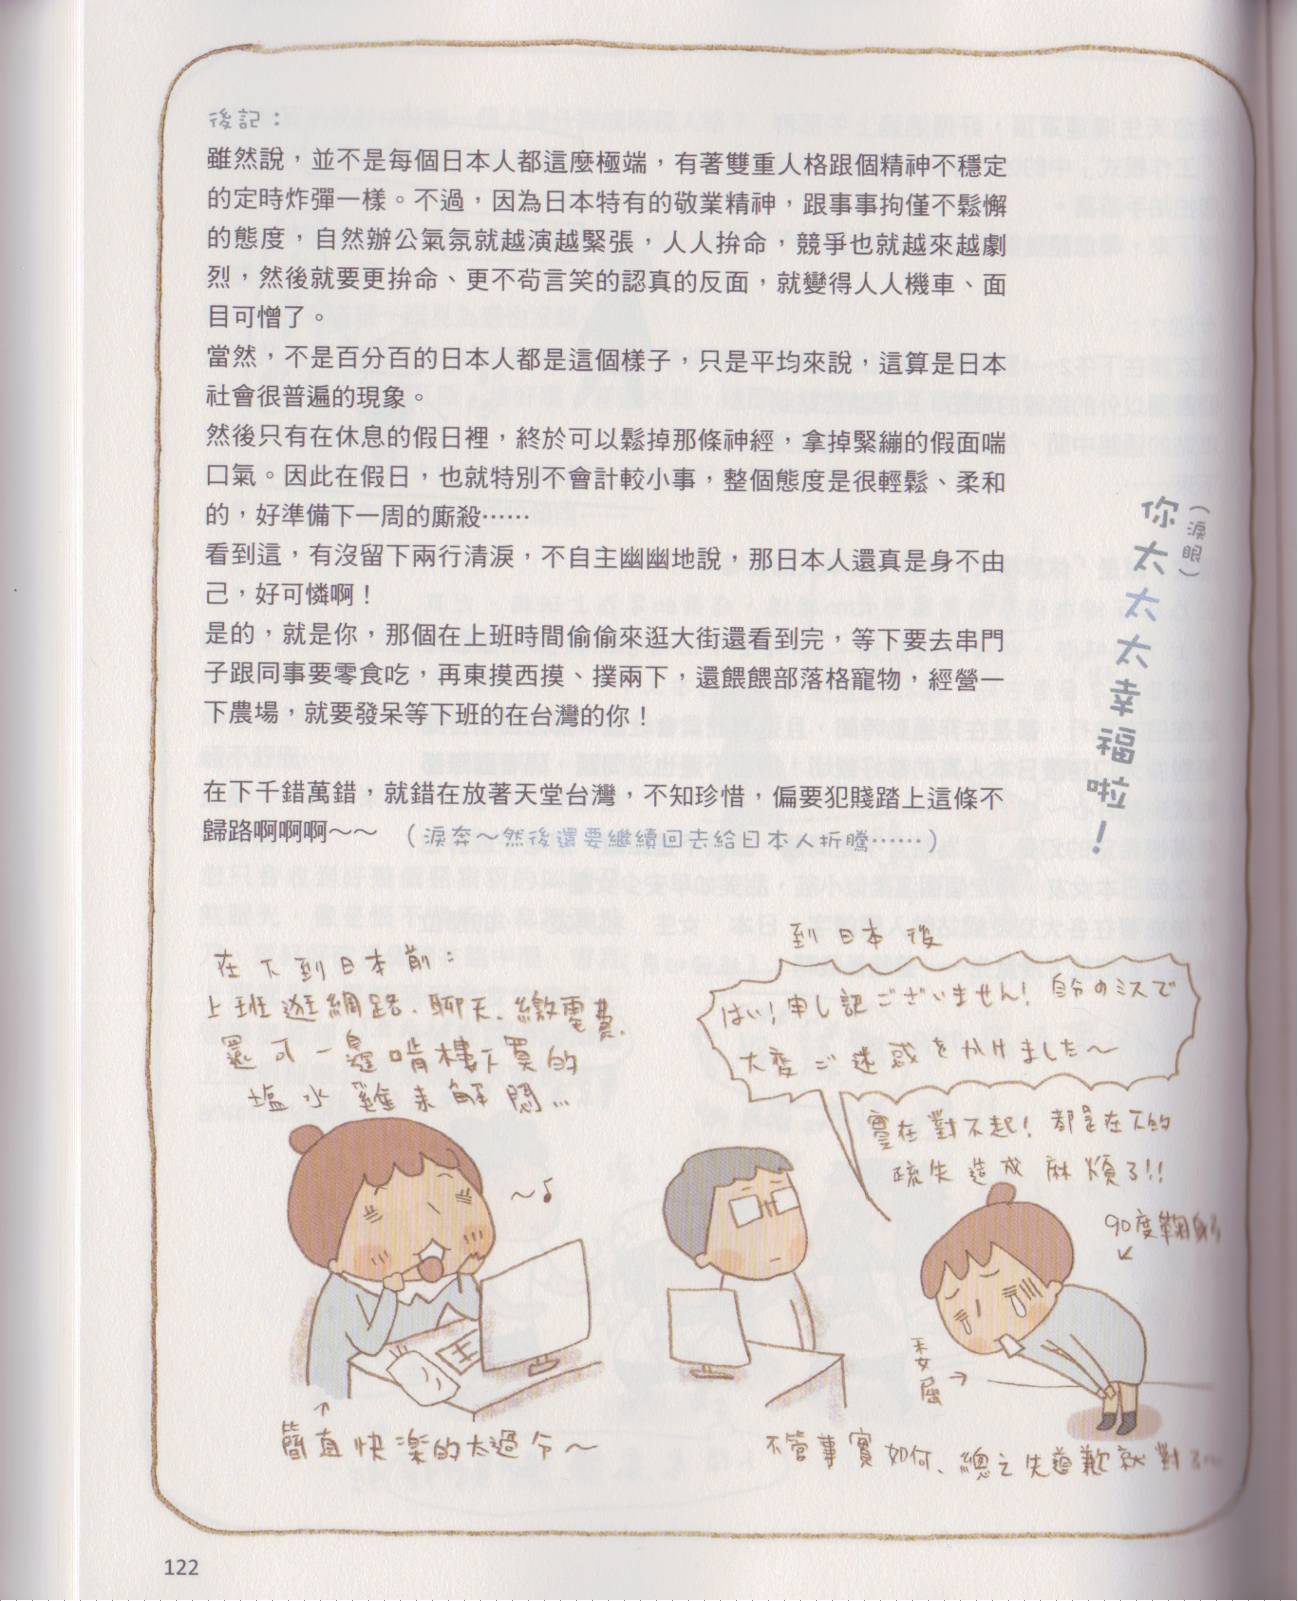 後記：
雖然說，並不是每個日本人都這麼極端，有著雙重人格跟個精神不穩定
的定時炸彈一樣。不過，因為日本特有的敬業精神，跟事事拘僅不鬆懈
的態度，自然辦公氣氛就越演越緊張，人人拚命，競爭也就越來越劇
烈，然後就要更拚命、更不苟言笑的認真的反面，就變得人人機車、面
目可憎了。
當然，不是百分百的日本人都是這個樣子，只是平均來說，這算是日本
社會很普遍的現象。
然後只有在休息的假日裡，終於可以鬆掉那條神經，拿掉緊繃的假面喘
口氣。因此在假日，也就特別不會計較小事，整個態度是很輕鬆、柔和
的，好準備下一周的廝殺⋯⋯
看到這，有沒留下兩行清淚，不自主幽幽地說，那日本人還真是身不由
己，好可憐啊！
是的，就是你，那個在上班時間偷偷來逛大街還看到完，等下要去串門
子跟同事要零食吃，再東摸西摸、撲兩下，還餵餵部落格寵物，經營一
下農場，就要發呆等下班的在台灣的你！
（淚眼）
你太太太幸福啦！
在下千錯萬錯，就錯在放著天堂台灣，不知珍惜，偏要犯賤踏上這條不
歸路啊啊啊～～（淚奔～然後還要繼續回去給日本人折騰⋯⋯）
在下到日本前：
上班逛網路、聊天、繳電費、
還可一邊啃樓下買的
塩水雞來解悶...
～♪
簡直快樂的太過分～
到日本後
はい！申し訳ございません！自分のミスで
大変ご迷惑をかけました～
實在對不起！都是在下的
疏失造成麻煩了!!
90度鞠躬
委屈
不管事實如何、總之先道歉就對了～
122